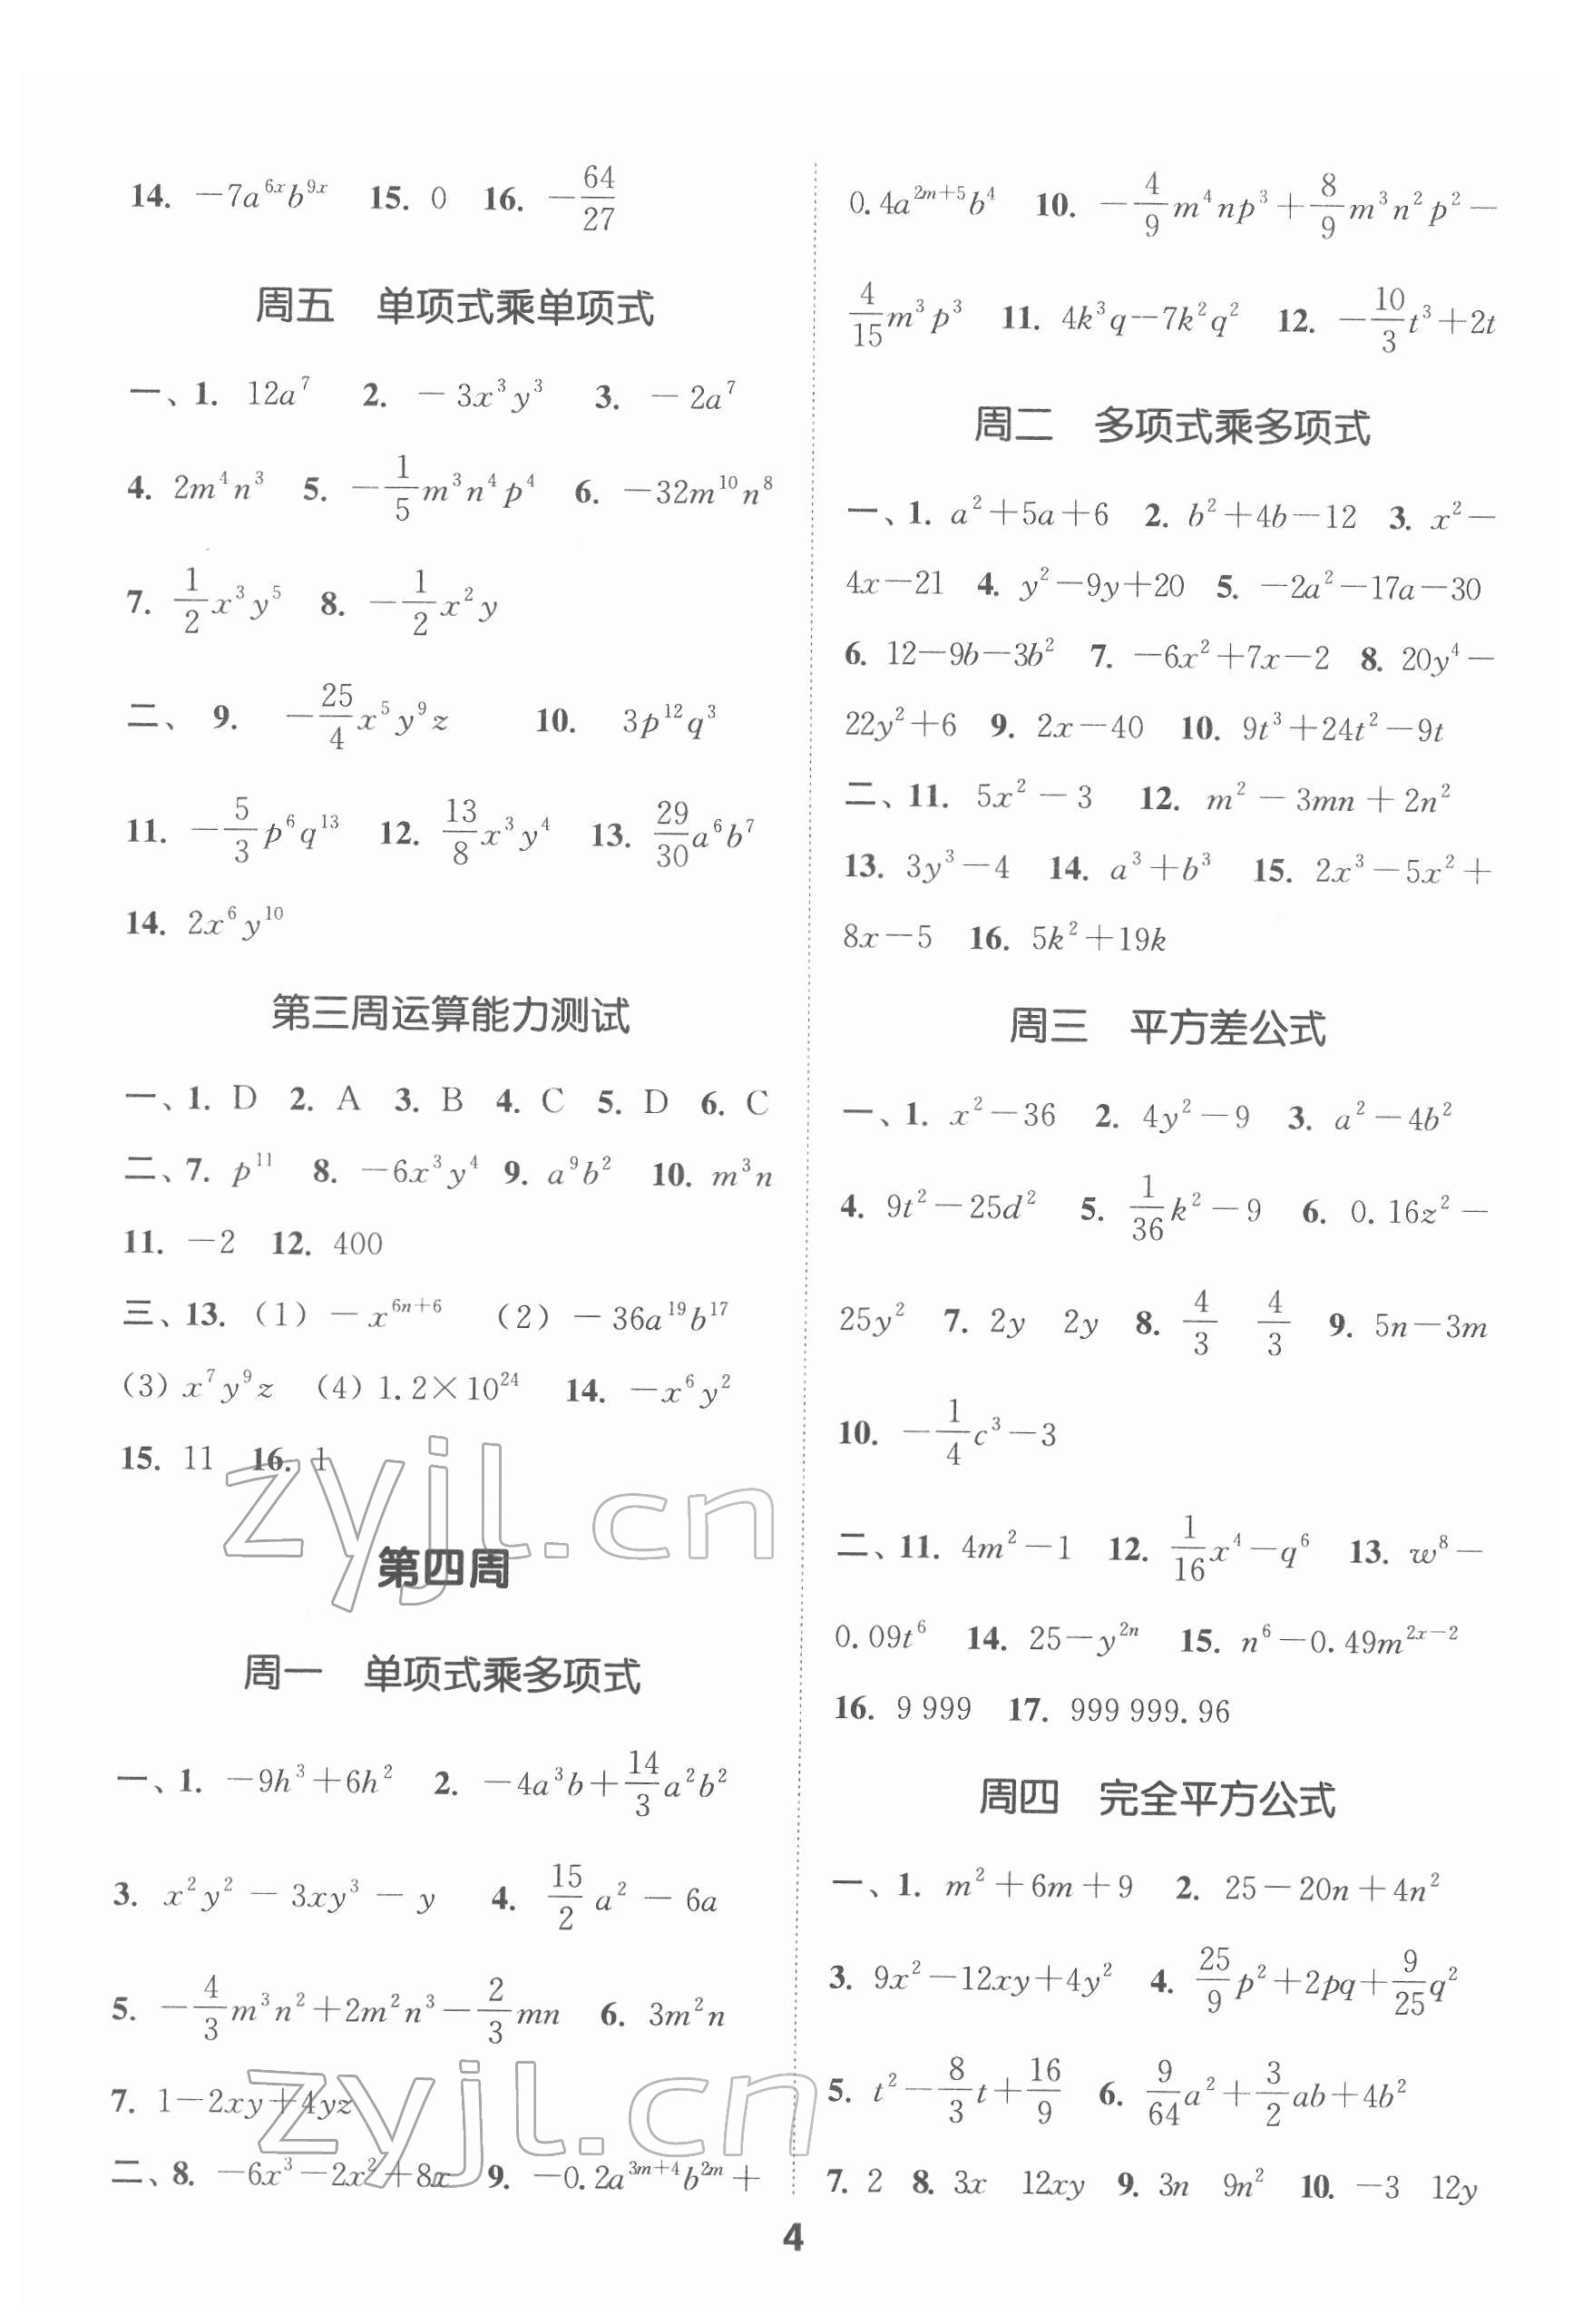 14. −7a^{6x}b^{9x} 15. 0 16. −64/27
周五 单项式乘单项式
一、1. 12a^7 2. −3x^3y^3 3. −2a^7
4. 2m^4n^3 5. −1/5 m^3n^4p^4 6. −32m^{10}n^8
7. 1/2 x^3y^5 8. −1/2 x^2y
二、9. −25/4 x^5y^9z 10. 3p^{12}q^3
11. −5/3 p^6q^{13} 12. 13/8 x^3y^4 13. 29/30 a^6b^7
14. 2x^6y^{10}
第三周运算能力测试
一、1. D 2. A 3. B 4. C 5. D 6. C
二、7. p^{11} 8. −6x^3y^4 9. a^9b^2 10. m^3n
11. −2 12. 400
三、13. (1) −x^{6n+6} (2) −36a^{19}b^{17}
(3) x^7y^9z (4) 1.2×10^{24} 14. −x^6y^2
15. 11 16. 1
zyjl.cn
第四周
周一 单项式乘多项式
一、1. −9h^3+6h^2 2. −4a^3b+14/3 a^2b^2
3. x^2y^2−3xy^3−y 4. 15/2 a^2−6a
5. −4/3 m^3n^2+2m^2n^3−2/3 mn 6. 3m^2n
7. 1−2xy+4yz
zyjl.cn
二、8. −6x^3−2x^2+8x 9. −0.2a^{3m+4}b^{2m}+
0.4a^{2m+5}b^4 10. −4/9 m^4np^3+8/9 m^3n^2p^2−
4/15 m^3p^3 11. 4k^3q−7k^2q^2 12. −10/3 t^3+2t
周二 多项式乘多项式
一、1. a^2+5a+6 2. b^2+4b−12 3. x^2−
4x−21 4. y^2−9y+20 5. −2a^2−17a−30
6. 12−9b−3b^2 7. −6x^2+7x−2 8. 20y^4−
22y^2+6 9. 2x−40 10. 9t^3+24t^2−9t
二、11. 5x^2−3 12. m^2−3mn+2n^2
13. 3y^3−4 14. a^3+b^3 15. 2x^3−5x^2+
8x−5 16. 5k^2+19k
周三 平方差公式
一、1. x^2−36 2. 4y^2−9 3. a^2−4b^2
4. 9t^2−25d^2 5. 1/36 k^2−9 6. 0.16z^2−
25y^2 7. 2y 2y 8. 4/3 4/3 9. 5n−3m
10. −1/4 c^3−3
二、11. 4m^2−1 12. 1/16 x^4−q^6 13. w^8−
0.09t^6 14. 25−y^{2n} 15. n^6−0.49m^{2x−2}
16. 9 999 17. 999 999.96
周四 完全平方公式
一、1. m^2+6m+9 2. 25−20n+4n^2
3. 9x^2−12xy+4y^2 4. 25/9 p^2+2pq+9/25 q^2
5. t^2−8/3 t+16/9 6. 9/64 a^2+3/2 ab+4b^2
7. 2 8. 3x 12xy 9. 3n 9n^2 10. −3 12y
4